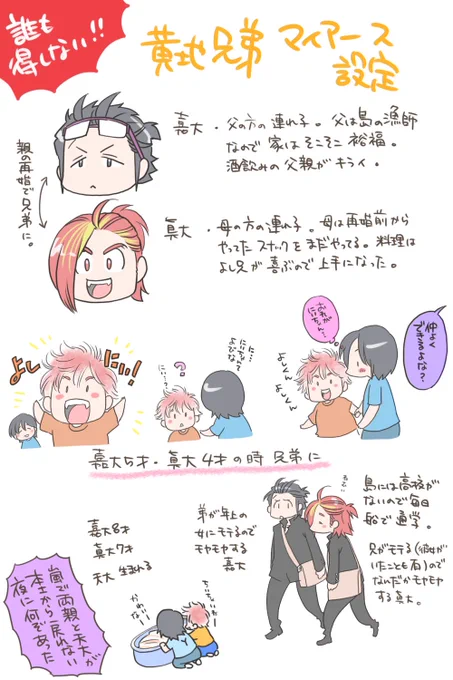 誰も
得しない!!
黄地兄弟 マイアース
設定
嘉大・父の方の連れ子。父は島の漁師
なので家はそこそこ裕福。
酒飲みの父親がキライ。
親の再婚で
兄弟に。
眞大・母の方の連れ子。母は再婚前から
やってたスナックをまだやってる。料理は
よし兄が喜ぶので上手になった。
よし
にい!!
に…
にいちゃんて
よびな
にい…?
?
これが
にいちゃん…
よしくん
よーしくん
仲よく
できるよな?
嘉大5才・眞大4才の時 兄弟に
島には高校が
ないので毎日
船で通学。
兄がモテる(彼女が
いたことも有)ので
なんだかモヤモヤ
する眞大。
弟が年上の
女にモテるので
モヤモヤする
嘉大
嘉大8才
眞大7才
天大 生まれる
ちっちゃい…
かわいい
嵐で両親と天大が
本土から戻れない
夜に何ぞあった